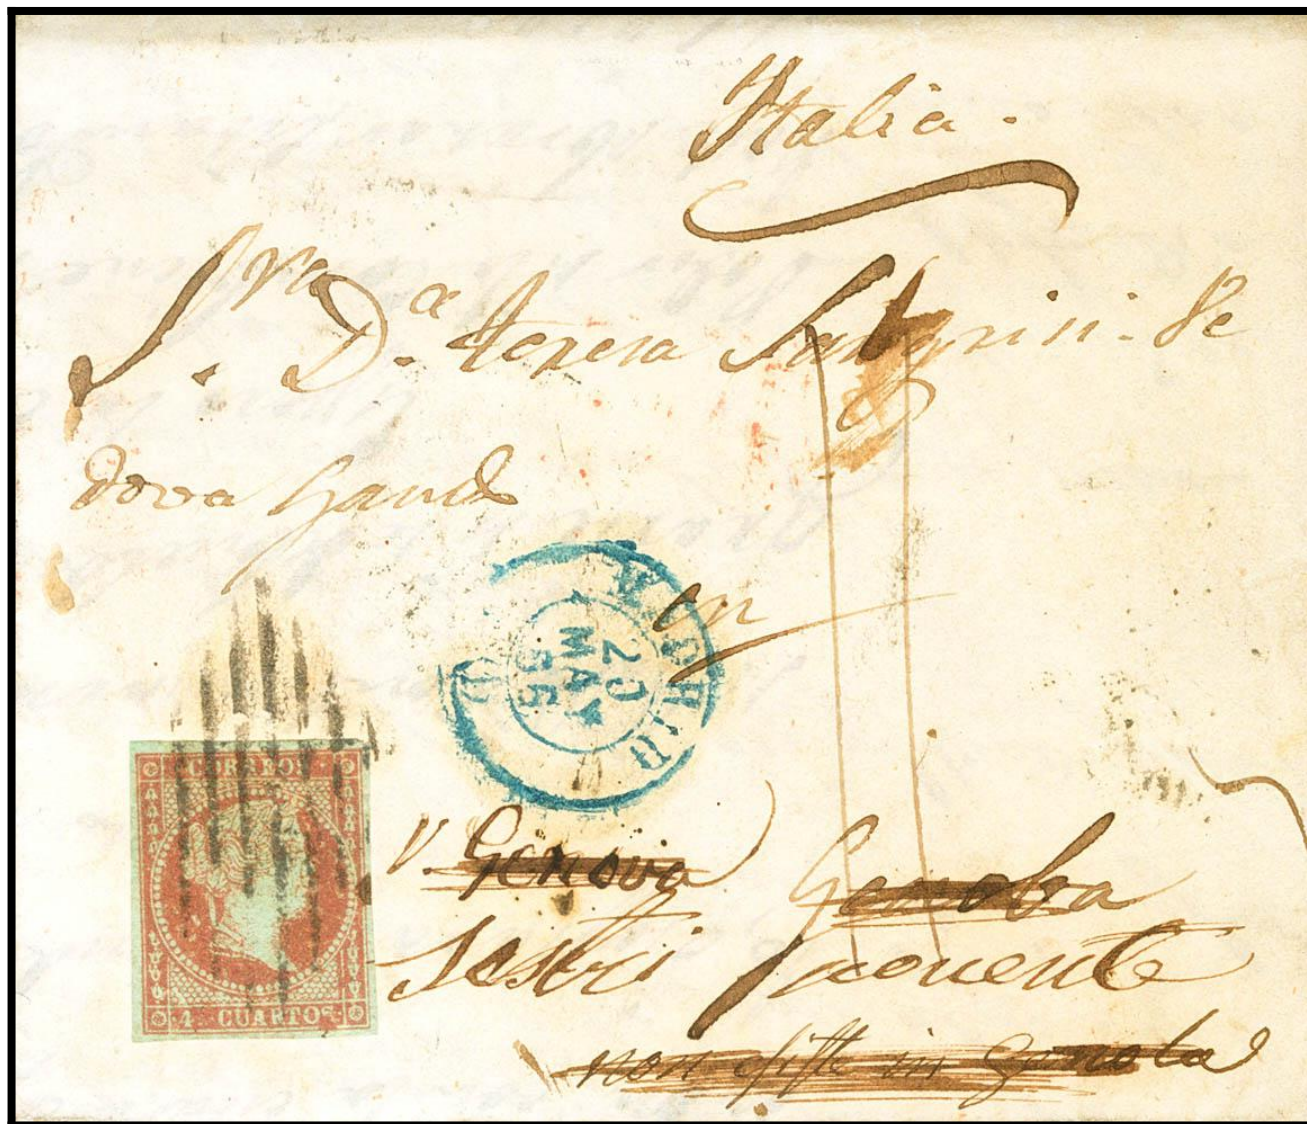 Italia.
S.ra D.a teresa Sangrini. Ve
dova
en
MADRID
20
MAY
55
V. Genova Genoba
Sestri Pronente
non esiste in Genova
CORREOS
4 CUARTOS